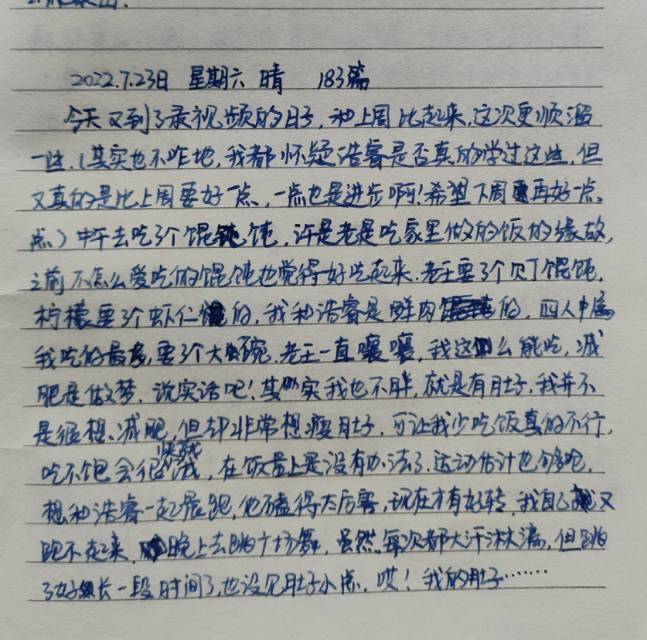 2022.7.23日 星期六 晴 183篇
今天又到了录视频的日子,和上周比起来,这次更顺溜
一些.(其实也不咋地,我都怀疑浩睿是否真的学过这些,但
又真的是比上周要好一点,一点也是进步啊!希望下周再好一点
点)中午去吃了个馄饨,许是老是吃家里做的饭的缘故,
之前不怎么爱吃的馄饨也觉得好吃起来.老王要了个贝丁馄饨,
柠檬要了个虾仁的,我和浩睿是鲜肉的,四人中属
我吃的最多,要了个大碗,老王一直嚷嚷,我这么能吃,减
肥是做梦,说实话吧!其实我也不胖,就是有肚子,我并不
是很想减肥,但却非常想瘦肚子,可让我少吃饭真的不行,
吃不饱会很饿,在饭量上是没有办法了.运动估计也够呛,
想和浩睿一起晨跑,他磕得太厉害,现在才有好转,我自己又
跑不起来,晚上去跳广场舞,虽然每次都大汗淋漓,但跳
了好长一段时间了,也没见肚子小点,哎!我的肚子……